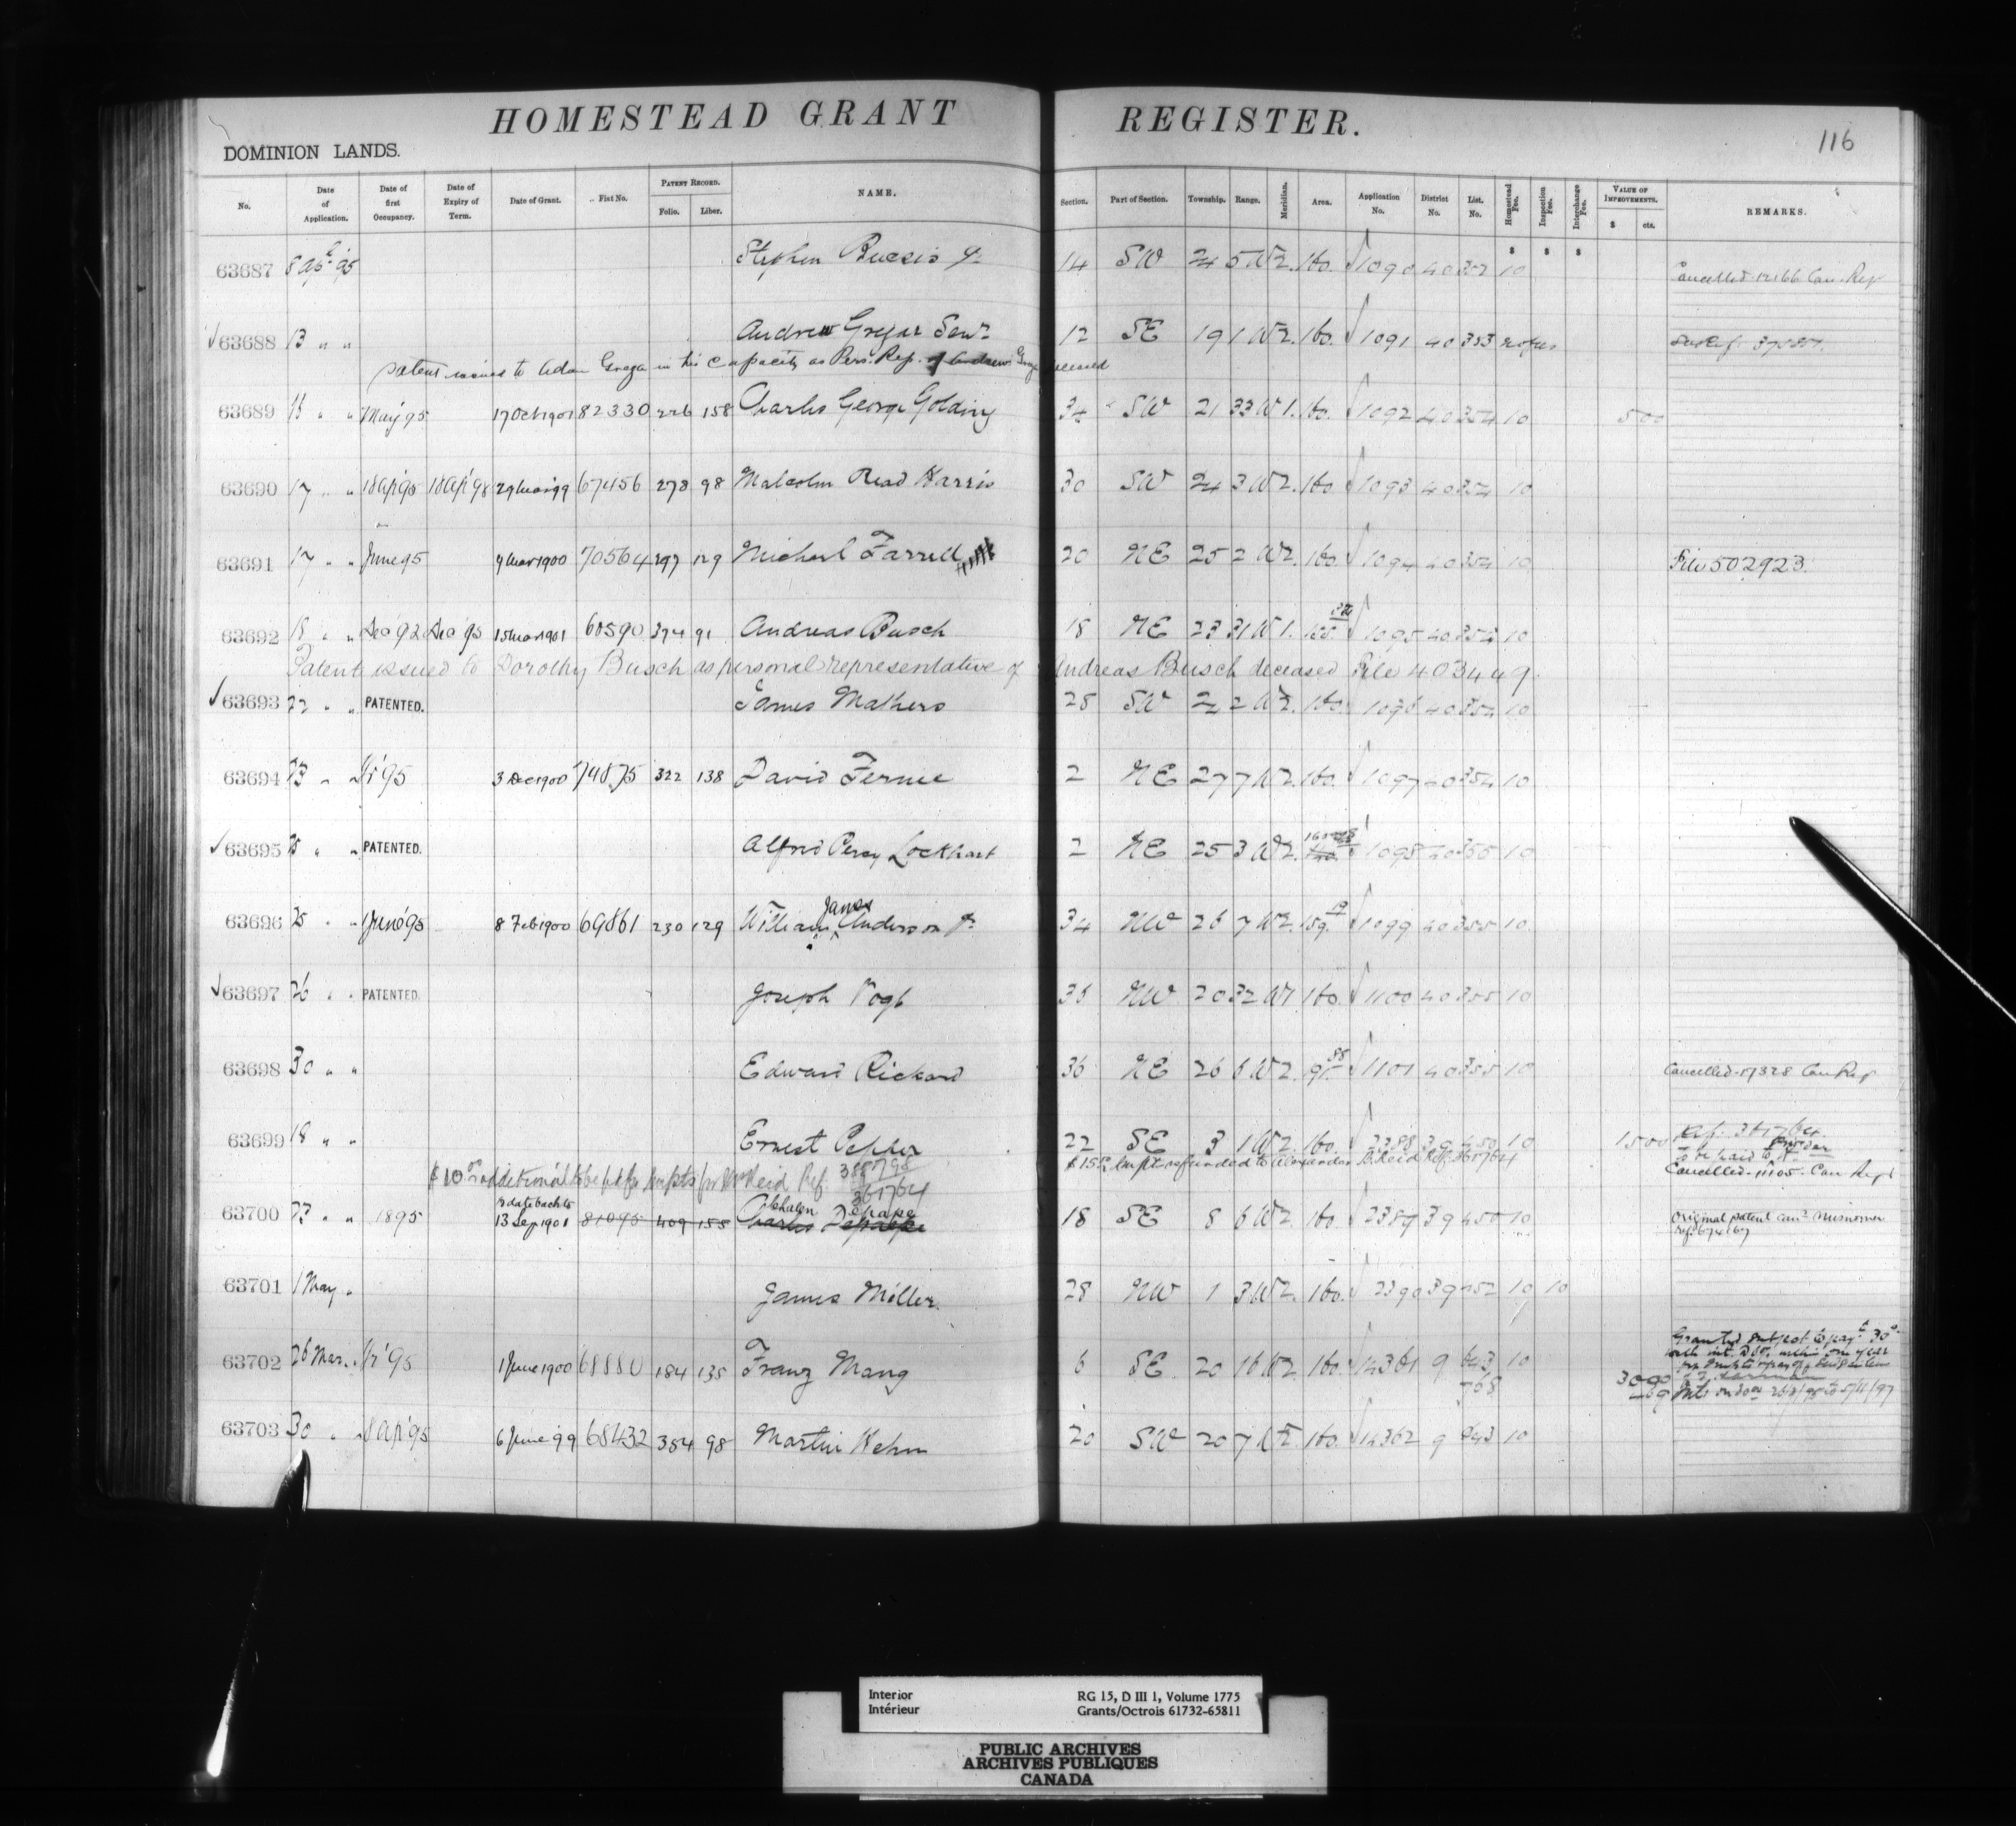 HOMESTEAD GRANT REGISTER.
116
DOMINION LANDS.
No. Date of Application. Date of first Occupancy. Date of Expiry of Term. Date of Grant. Fiat No. PATENT RECORD. Folio. Liber. NAME. Section. Part of Section. Township. Range. Meridian. Area. Application No. District No. List. No. Homestead Fee. Inspection Fee. Interchange Fee. VALUE OF IMPROVEMENTS. $ cts. REMARKS.
$ $ $
63687 8 Stephen 14 SW 24 5 W2. 160. 1090 40 10 Cancelled Can. Reg
63688 13 " " Andrew Gregar Senr 12 SE 19 1 W2. 160. 1091 40 353
Patent issued to Adam in his capacity as Pers. Rep. of Andrew deceased
63689 " " May 95 17 Oct 1901 82330 226 158 Charles George Golding 34 SW 21 33 W1. 160. 1092 40 354 10 500
63690 17 " " 18 Ap 95 18 Ap 98 29 Mar 99 67456 278 98 Malcolm Read Harris 30 SW 24 3 W2. 160 1093 40 354 10
63691 17 " " June 95 9 Mar 1900 70564 297 129 Michael Farrell 20 NE 25 2 W2. 160. 1094 40 354 10 File 502923.
63692 18 " " Dec 92 Dec 95 15 Mar 1901 60590 374 91 Andreas Busch 18 NE 23 31 W1. 1095 40 354 10
Patent issued to Dorothy Busch as personal representative of Andreas Busch deceased File 403449.
63693 22 " " PATENTED. James Mathers 28 SW 22 2 W2. 160. 1096 40 354 10
63694 23 " " 95 3 Dec 1900 74875 322 138 David Fernie 2 NE 27 7 W2. 160. 1097 40 354 10
63695 25 " " PATENTED. Alfred Percy Lockhart 2 NE 25 3 W2. 1098 40 355 10
63696 25 " " June 95 8 Feb 1900 69861 230 129 William James Anderson Jr 34 NW 26 7 W2. 159. 1099 40 355 10
63697 26 " " PATENTED. Joseph Vogt 36 NW 20 32 W1 160. 1100 40 355 10
63698 30 " " Edward Rickard 36 NE 26 6 W2. 1101 40 355 10 Cancelled Can Reg
63699 18 " " Ernest Pepper 22 SE 3 1 W2. 160. 2388 39 450 10 1500 Ref. 361764
$10 additional to be pd for impts for Reid Ref. 388798 $15 Impts refunded to Alexander Reid Ref. 361764 Cancelled-11105-Can Reg
63700 23 " " 1895 13 Sep 1901 81095 409 155 18 SE 8 6 W2. 160. 2389 39 450 10 Original patent Misnomer
63701 1 May " James Miller. 28 NW 1 3 W2. 160. 2390 39 452 10 10
63702 26 Mar. " 95 1 June 1900 68880 184 135 Franz Mang 6 SE 20 16 W2 160 14361 9 643 10
768
63703 30 " " 8 Ap 95 6 June 99 68432 354 98 Martin Kehn 20 SW 20 7 160. 14362 9 643 10
Interior RG 15, D III 1, Volume 1775
Intérieur Grants/Octrois 61732-65811
PUBLIC ARCHIVES
ARCHIVES PUBLIQUES
CANADA